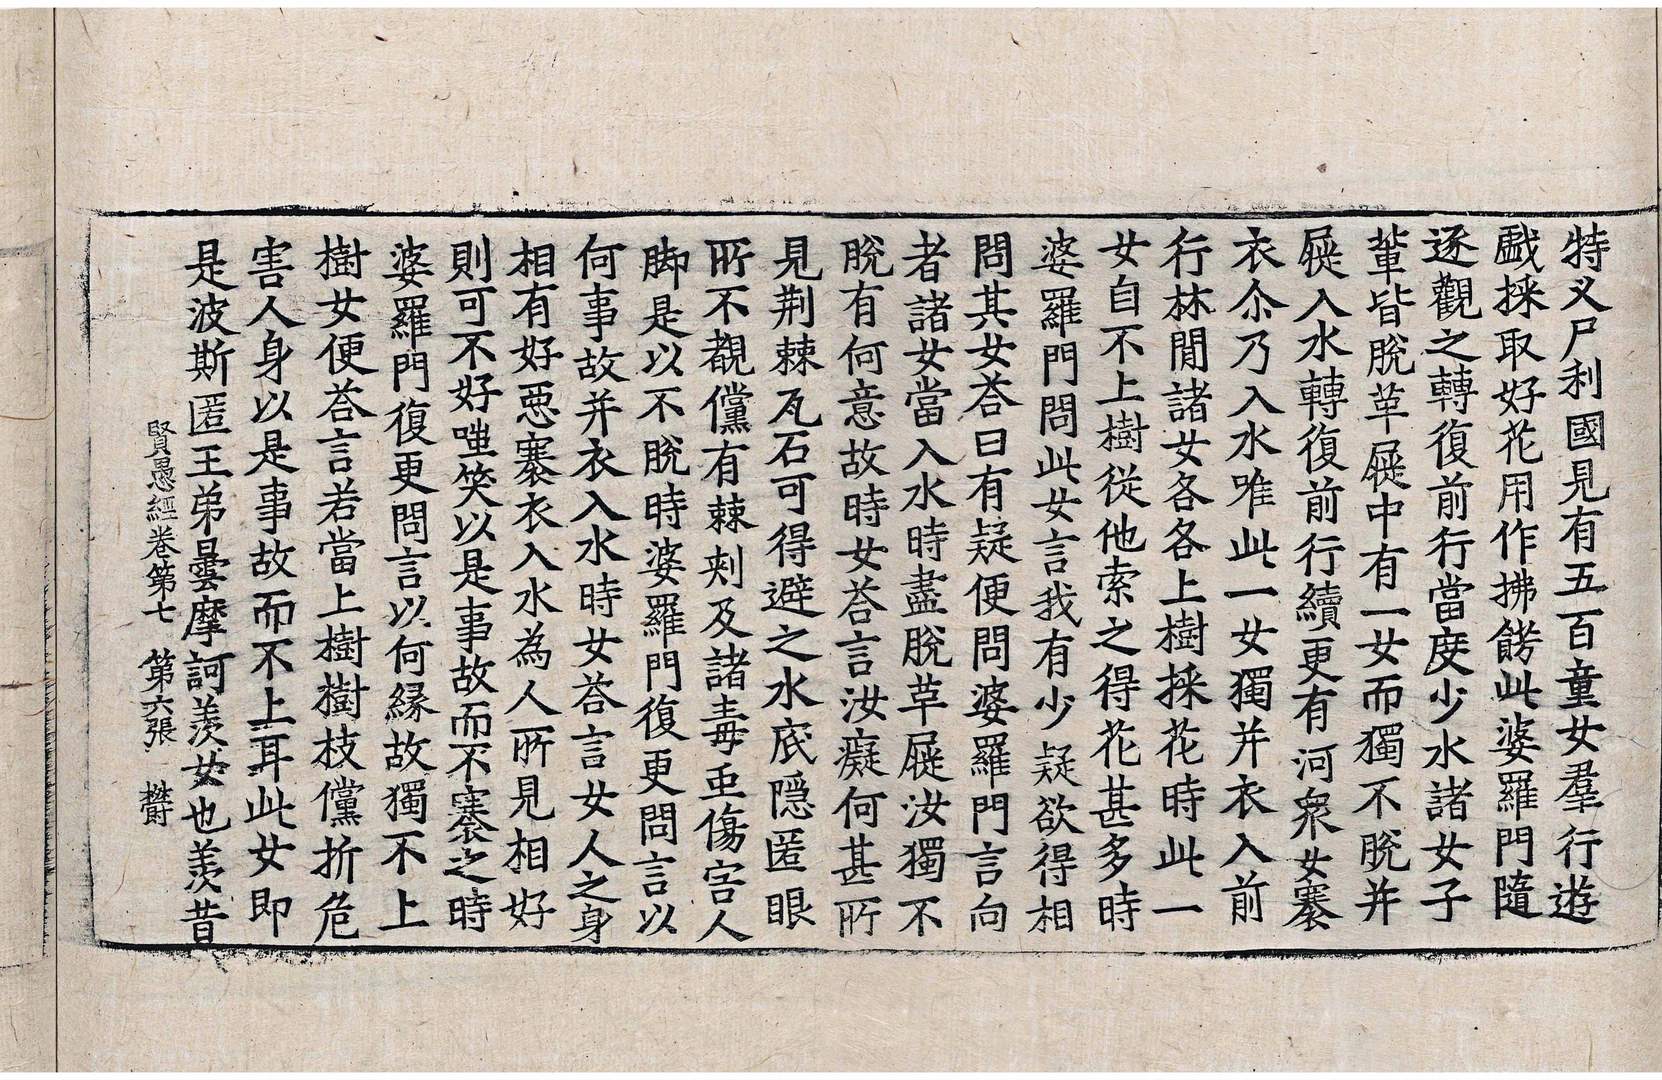 特叉尸利國見有五百童女羣行遊
戱採取好花用作拂餝此婆羅門隨
逐觀之轉復前行當度少水諸女子
輩皆脫革屣中有一女而獨不脫并
屣入水轉復前行續更有河衆女褰
衣尒乃入水唯此一女獨并衣入前
行林閒諸女各各上樹採花時此一
女自不上樹從他索之得花甚多時
婆羅門問此女言我有少疑欲得相
問其女荅曰有疑便問婆羅門言向
者諸女當入水時盡脫草屣汝獨不
脫有何意故時女荅言汝癡何甚所
見荆棘瓦石可得避之水底隱匿眼
所不覩儻有棘刺及諸毒䖝傷害人
脚是以不脫時婆羅門復更問言以
何事故并衣入水時女荅言女人之身
相有好惡褰衣入水為人所見相好
則可不好嗤笑以是事故而不褰之時
婆羅門復更問言以何緣故獨不上
樹女便荅言若當上樹樹枝儻折危
害人身以是事故而不上耳此女即
是波斯匿王弟曇摩訶羨女也羨昔
賢愚經卷第七 第六張 欝